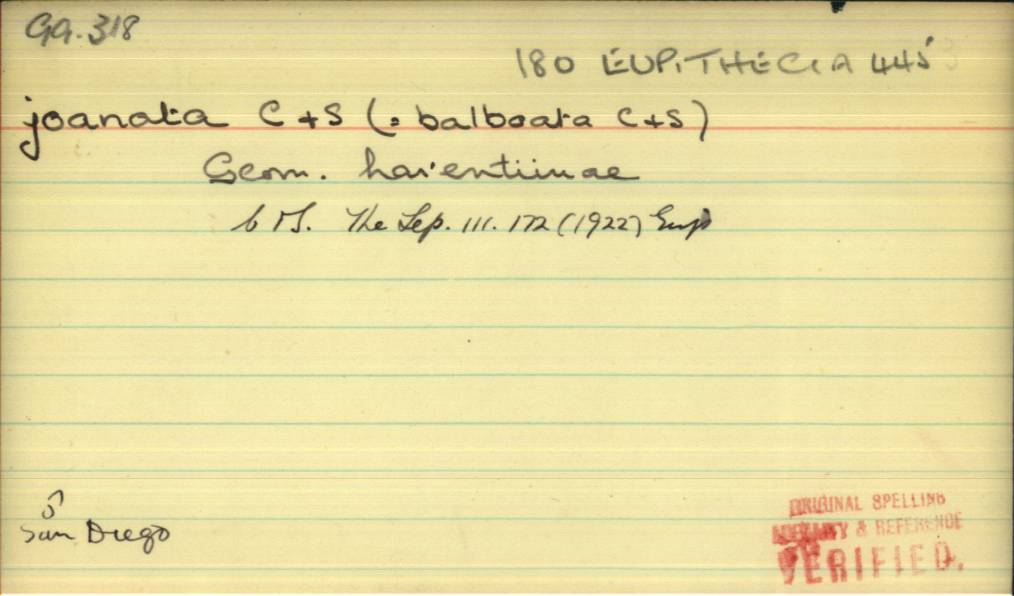 GA. 318
180 EUPITHECIA 445
joanata C+S (= balboata C+S)
Geom. Larentiinae
The Lep. 111. 172 (1922) Eup
♂
San Diego
ORIGINAL SPELLING
& REFERENCE
VERIFIED.